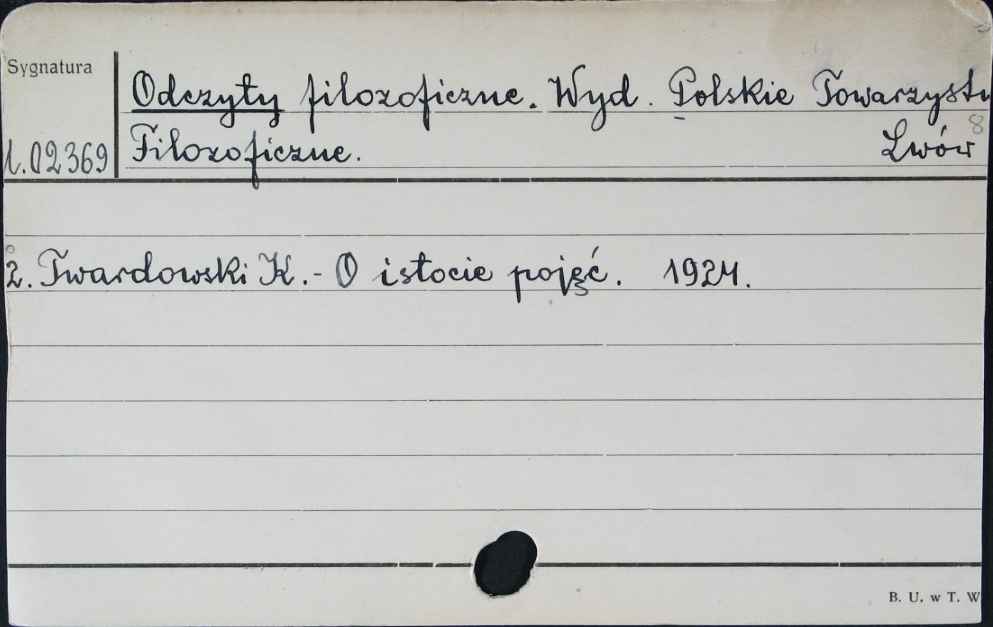 Sygnatura
Odczyty filozoficzne. Wyd. Polskie Towarzystw
1.02369 Filozoficzne. Lwów 8
2. Twardowski K. - O istocie pojęć. 1924.
B. U. w T. W